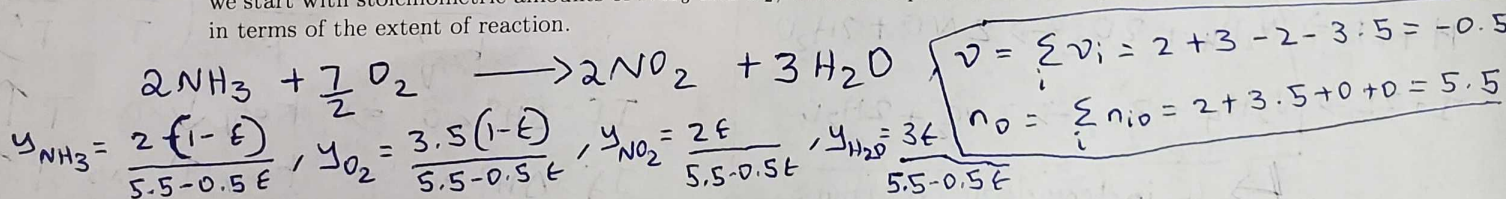 we start with stoichiometric
in terms of the extent of reaction.
2NH3 + 7/2 O2 ⟶ 2NO2 + 3H2O
ν = Σi νi = 2+3-2-3.5 = -0.5
n0 = Σi ni0 = 2+3.5+0+0 = 5.5
yNH3 = 2(1-ε)/(5.5-0.5ε), yO2 = 3.5(1-ε)/(5.5-0.5ε), yNO2 = 2ε/(5.5-0.5ε), yH2O = 3ε/(5.5-0.5ε)